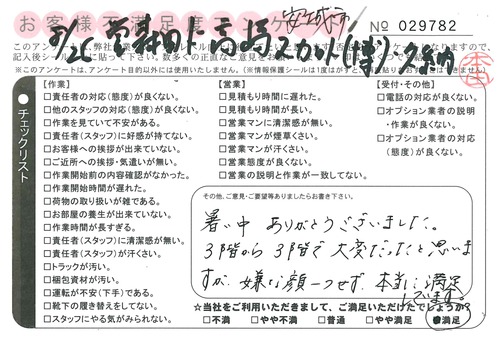 お客様満足度アンケート
安城市
No 029782
8/26
チェックリスト
【作業】
□責任者の対応(態度)が良くない。
□他のスタッフの対応(態度)が良くない。
□作業を見ていて不安がある。
□責任者(スタッフ)に好感が持てない。
□お客様への挨拶が出来ていない。
□ご近所への挨拶・気遣いが無い。
□作業開始前の内容確認がなかった。
□作業開始時間が遅れた。
□荷物の取り扱いが雑である。
□お部屋の養生が出来ていない。
□作業時間が長すぎる。
□責任者(スタッフ)に清潔感が無い。
□責任者(スタッフ)が汗くさい。
□トラックが汚い。
□梱包資材が汚い。
□運転が不安(下手)である。
□靴下の履き替えをしてない。
□スタッフにやる気がみられない。
【営業】
□見積もり時間に遅れた。
□見積もり時間が長い。
□営業マンに清潔感が無い。
□営業マンが煙草くさい。
□営業マンが汗くさい。
□営業態度が良くない。
□営業の説明と作業が一致してない。
【受付・その他】
□電話の対応が良くない。
□オプション業者の説明
・作業が良くない。
□オプション業者の対応
(態度)が良くない。
その他、ご意見・ご要望等ありましたらお書き下さい。
暑い中 ありがとうございました。
3階から3階で大変だったと思いま
すが 嫌な顔一つせず 本当に満足
しています。
☆当社をご利用いただきまして、ご満足いただけたでしょうか?
□不満 □やや不満 □普通 □やや満足 ■満足